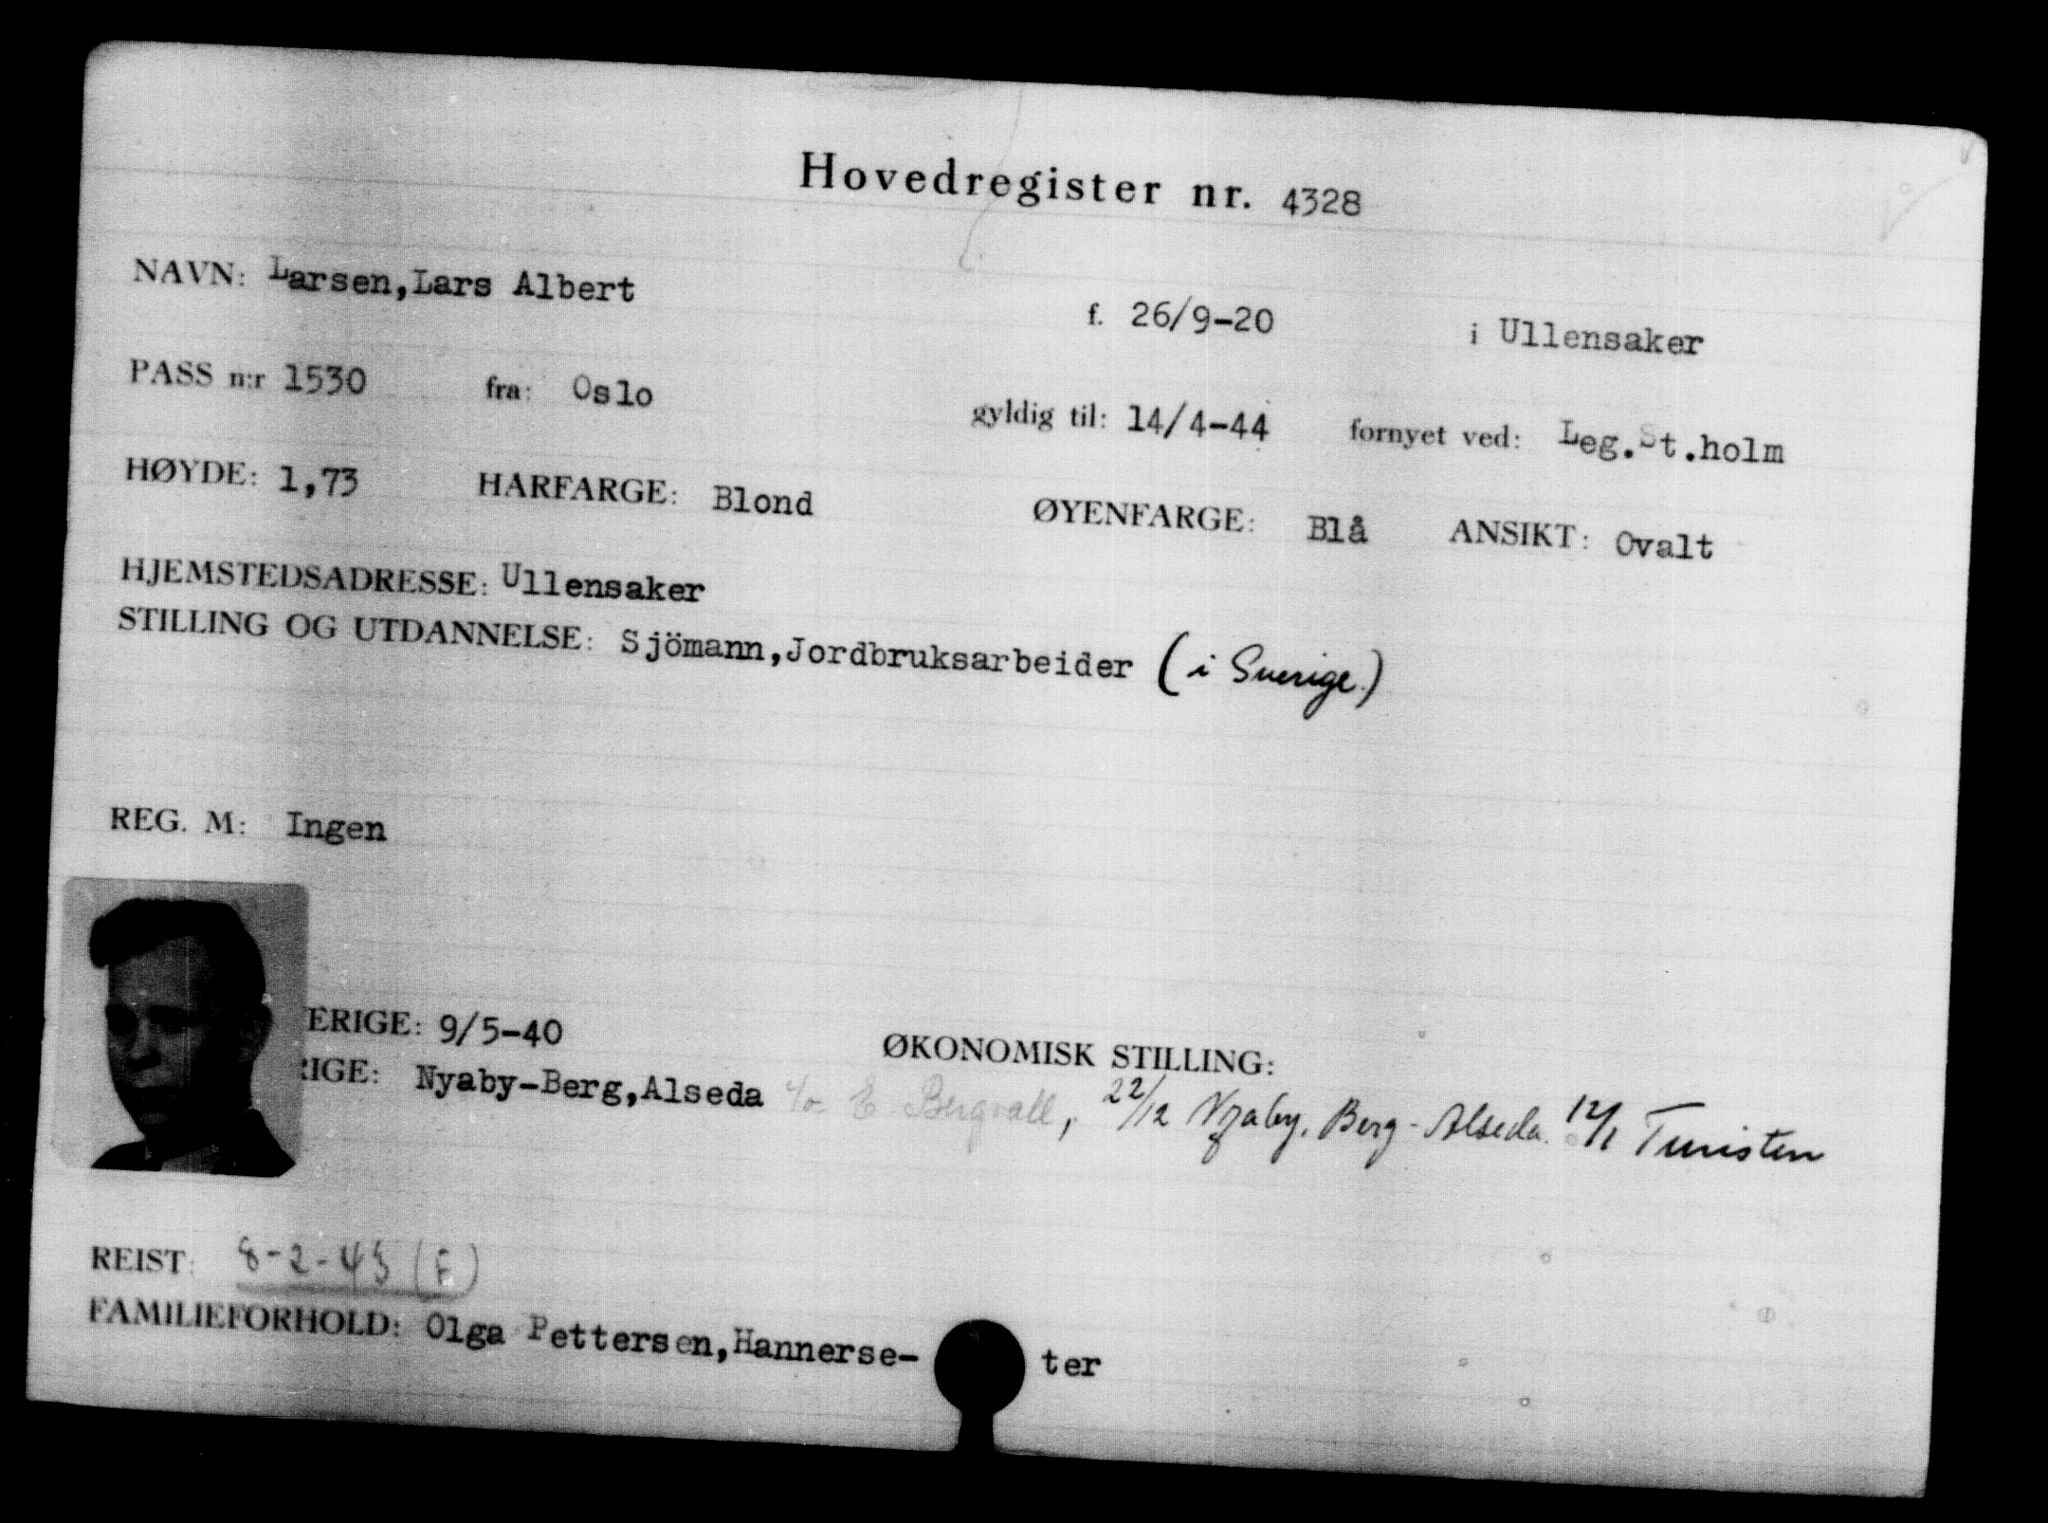 Hovedregister nr. 4328
NAVN: Larsen,Lars Albert f. 26/9-20 i Ullensaker
PASS n:r 1530 fra: Oslo gyldig til: 14/4-44 fornyet ved: Leg.St.holm
HØYDE: 1,73 HARFARGE: Blond ØYENFARGE: Blå ANSIKT: Ovalt
HJEMSTEDSADRESSE: Ullensaker
STILLING OG UTDANNELSE: Sjömann,Jordbruksarbeider (i Sverige.)
REG. M: Ingen
ERIGE: 9/5-40 ØKONOMISK STILLING:
RIGE: Nyaby-Berg,Alseda c/o E Bergvall, 22/12 Nyaby, Berg-Alseda. 12/1 Turisten
REIST: 8-2-43 (F)
FAMILIEFORHOLD: Olga Pettersen,Hannerse- ter